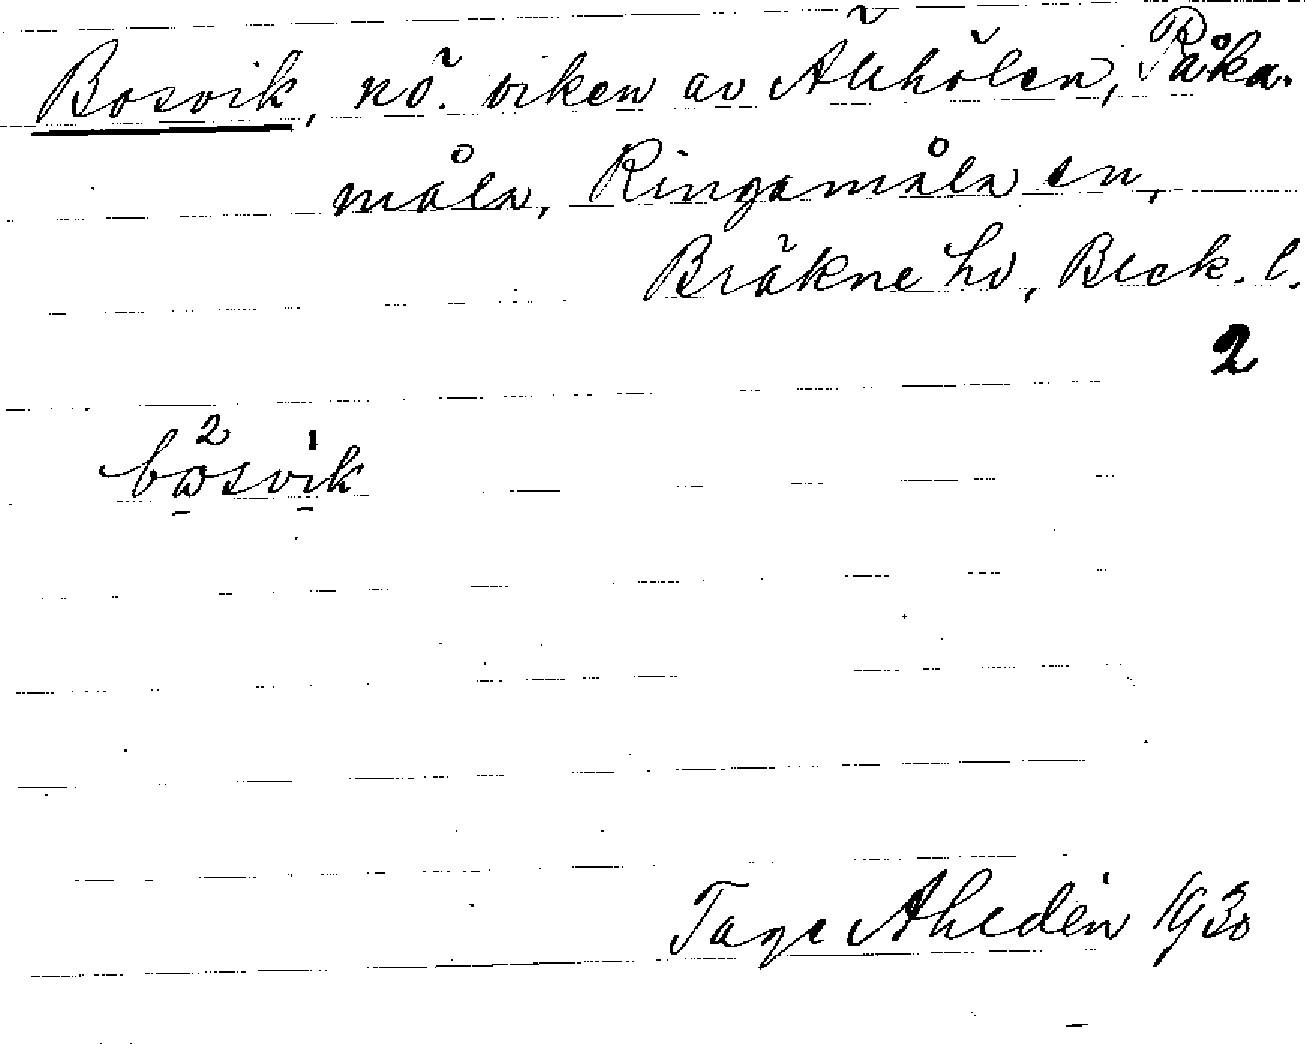 Bosvik, nö. viken av Älehölen, Påka-
måla, Ringamåla sn,
Bräkne hd, Blek. l.
2
Tage Ahldén 1930